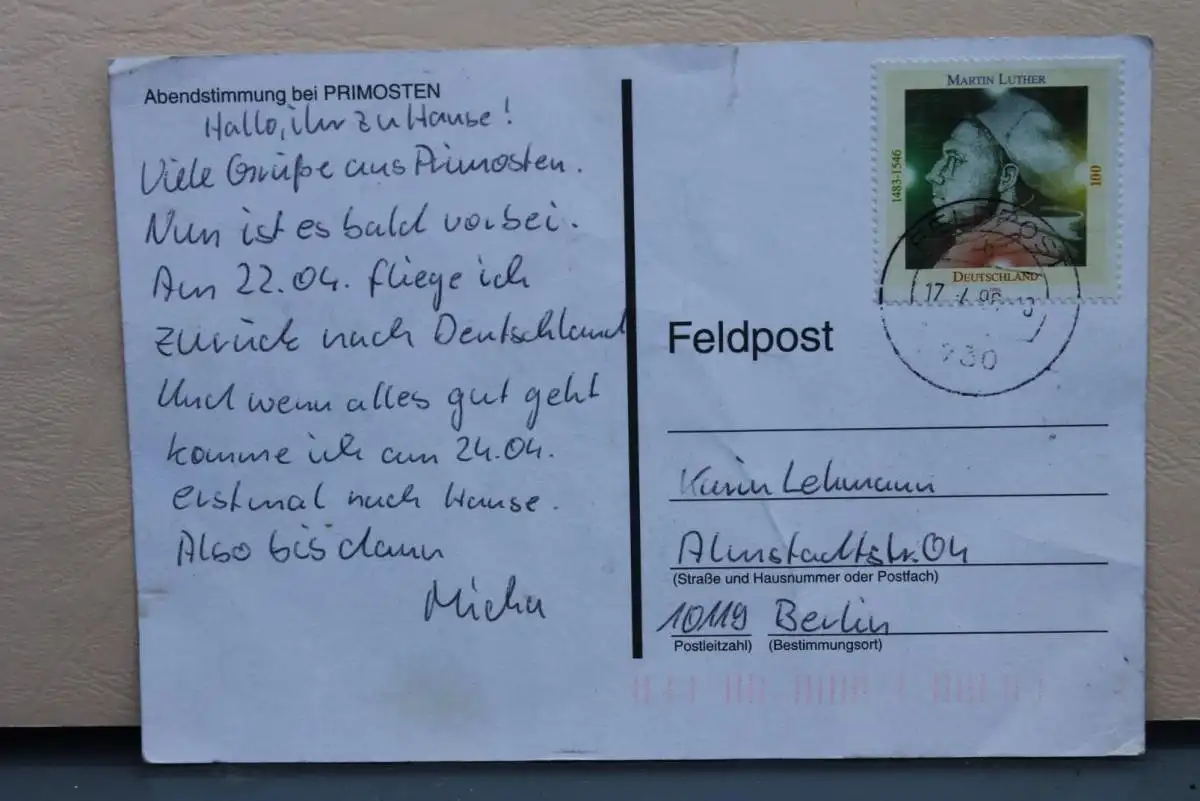 Abendstimmung bei PRIMOSTEN
Hallo, ihr zu Hause!
Viele Grüße aus Primosten.
Nun ist es bald vorbei.
Am 22.04. fliege ich
zurück nach Deutschland
Und wenn alles gut geht
komme ich am 24.04.
erstmal nach Hause.
Also bis dann
Micha
MARTIN LUTHER
1483-1546
100
DEUTSCHLAND
FELDPOST
Feldpost
Karin Lehmann
Almstadtstr. 04
(Straße und Hausnummer oder Postfach)
10119 Berlin
Postleitzahl) (Bestimmungsort)